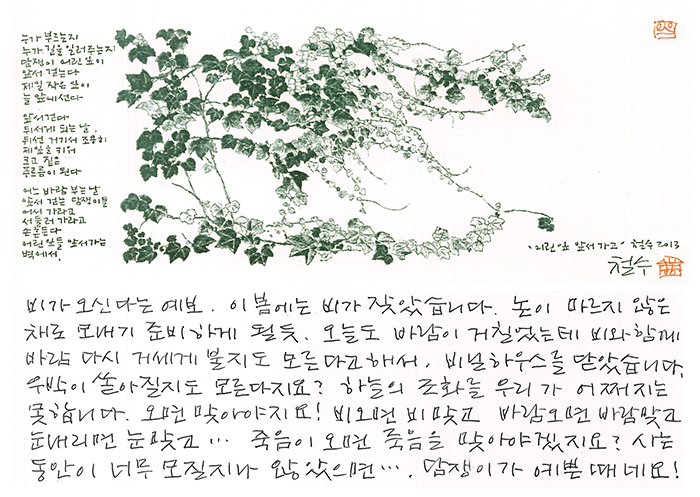 누가 부르는지
누가 길을 일러주는지
담쟁이 어린 잎이
앞서 걷는다
제일 작은 잎이
늘 앞에 선다
앞서 걷다
뒤서게 되는 날,
뒤선 거기서 조용히
제 잎을 키워
크고 짙은
푸르름이 된다
어느 바람 부는 날
앞서 걷는 담쟁이들
어서 가라고
서둘러 가라고
손 흔든다
어린 잎들 앞서가는
벽에서.
'어린 잎 앞서 가고' 철수 2013
철수
비가 오신다는 예보. 이 봄에는 비가 잦았습니다. 논이 마르지 않은
채로 모내기 준비하게 될 듯. 오늘도 바람이 거칠었는데 비와 함께
바람 다시 거세게 불지도 모른다고 해서, 비닐하우스를 닫았습니다.
우박이 쏟아질지도 모른다지요? 하늘의 조화를 우리가 어쩌지는
못합니다. 오면 맞아야지요! 비오면 비맞고 바람오면 바람맞고
눈내리면 눈맞고… 죽음이 오면 죽음을 맞아야겠지요? 사는
동안이 너무 모질지나 않았으면…. 담쟁이가 예쁜 때네요!